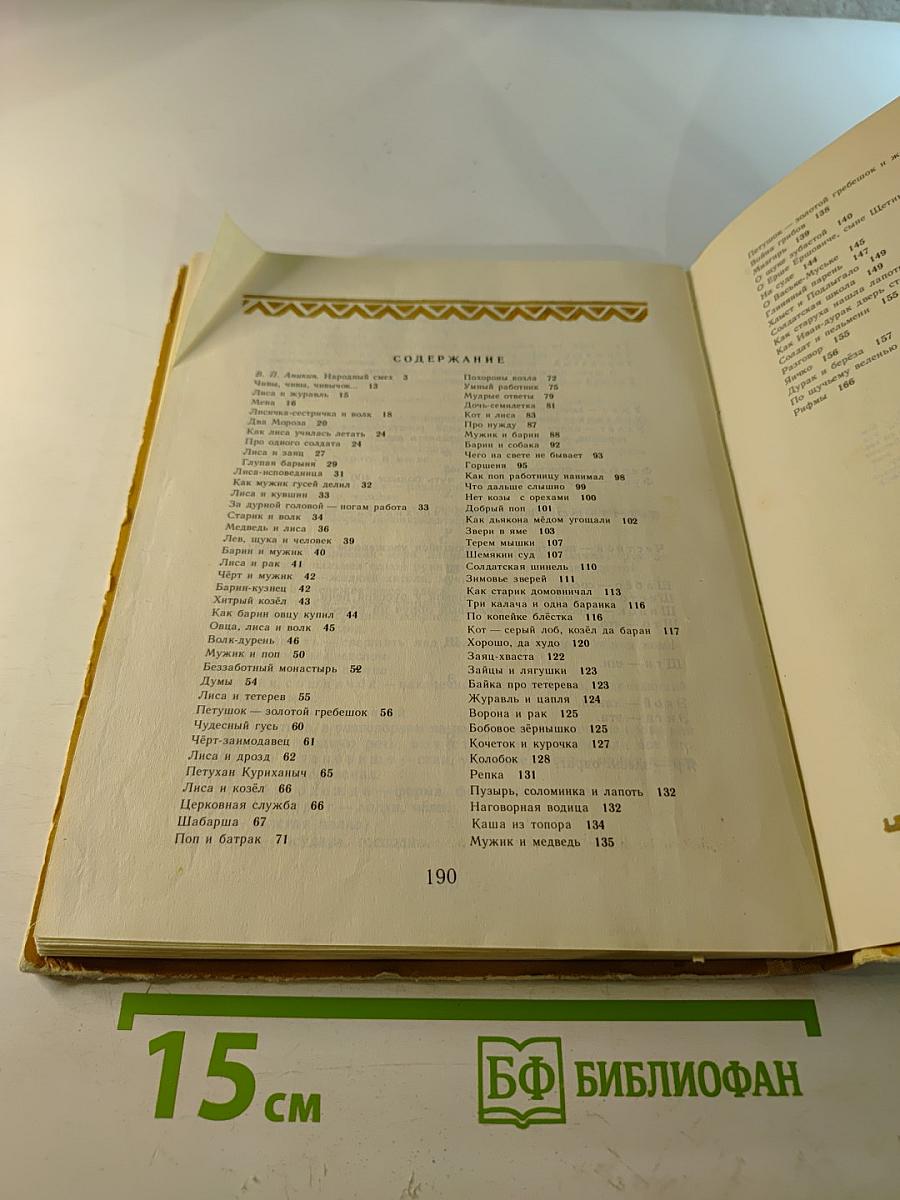 СОДЕРЖАНИЕ
В. П. Аникин. Народный смех 3
Чивы, чивы, чивычок... 13
Лиса и журавль 15
Мена 16
Лисичка-сестричка и волк 18
Два Мороза 20
Как лиса училась летать 24
Про одного солдата 24
Лиса и заяц 27
Глупая барыня 29
Лиса-исповедница 31
Как мужик гусей делил 32
Лиса и кувшин 33
За дурной головой — ногам работа 33
Старик и волк 34
Медведь и лиса 36
Лев, щука и человек 39
Барин и мужик 40
Лиса и рак 41
Чёрт и мужик 42
Барин-кузнец 42
Хитрый козёл 43
Как барин овцу купил 44
Овца, лиса и волк 45
Волк-дурень 46
Мужик и поп 50
Беззаботный монастырь 52
Думы 54
Лиса и тетерев 55
Петушок — золотой гребешок 56
Чудесный гусь 60
Чёрт-заимодавец 61
Лиса и дрозд 62
Петухан Куриханыч 65
Лиса и козёл 66
Церковная служба 66
Шабарша 67
Поп и батрак 71
Похороны козла 72
Умный работник 75
Мудрые ответы 79
Дочь-семилетка 81
Кот и лиса 83
Про нужду 87
Мужик и барин 88
Барин и собака 92
Чего на свете не бывает 93
Горшеня 95
Как поп работницу нанимал 98
Что дальше слышно 99
Нет козы с орехами 100
Добрый поп 101
Как дьякона мёдом угощали 102
Звери в яме 103
Терем мышки 107
Шемякин суд 107
Солдатская шинель 110
Зимовье зверей 111
Как старик домовничал 113
Три калача и одна баранка 116
По копейке блёстка 116
Кот — серый лоб, козёл да баран 117
Хорошо, да худо 120
Заяц-хваста 122
Зайцы и лягушки 123
Байка про тетерева 123
Журавль и цапля 124
Ворона и рак 125
Бобовое зёрнышко 125
Кочеток и курочка 127
Колобок 128
Репка 131
Пузырь, соломинка и лапоть 132
Наговорная водица 132
Каша из топора 134
Мужик и медведь 135
190
Петушок — золотой гребешок и ж
Война грибов 138
Мизгирь 139
О щуке зубастой 140
О Ерше Ершовиче, сыне Щетин
На суде 144
О Ваське-Муське 145
Глиняный парень 147
Хлыст и Подлыгало 149
Солдатская школа 149
Как старуха нашла лапоть
Как Иван-дурак дверь ст
Солдат и пельмени 155
Разговор 155
Яичко 156
Дурак и берёза 157
По щучьему веленью
Рифмы 166
15 см
БФ БИБЛИОФАН